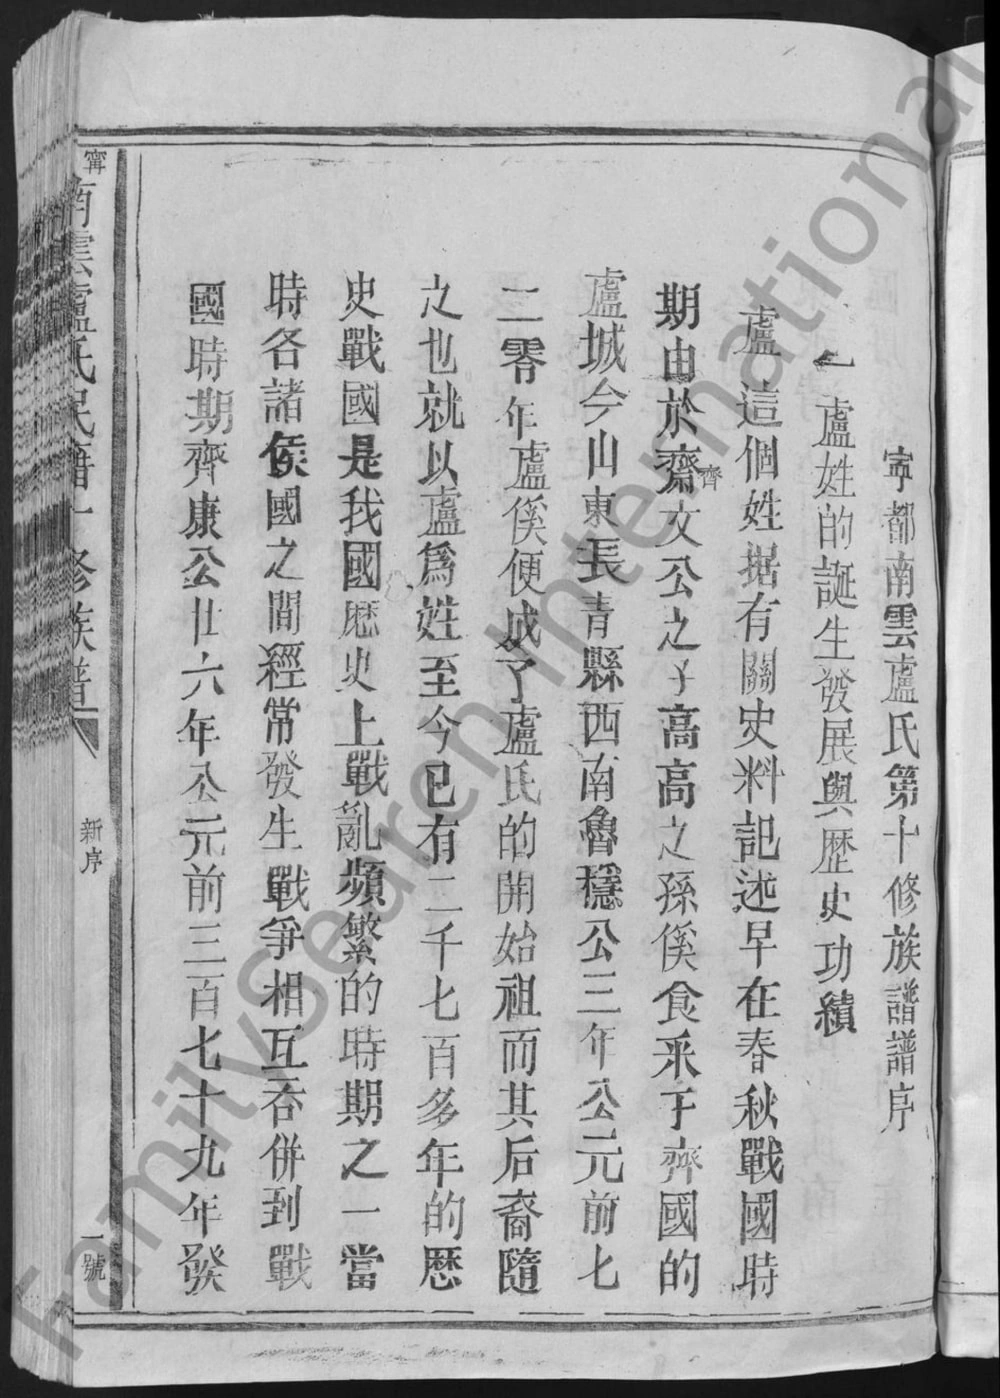 寧都南雲盧氏第十修族譜譜序
一盧姓的誕生發展與歷史功績
盧這個姓据有關史料記述早在春秋戰國時
期由於齋文公之子高高之孫傒食采于齊國的
齊
盧城今山東長青縣西南魯穩公三年公元前七
二零年盧傒便成了盧氏的開始祖而其后裔隨
之也就以盧爲姓至今已有二千七百多年的歷
史戰國是我國歷史上戰亂頻繁的時期之一當
時各諸侯國之間經常發生戰爭相互吞併到戰
國時期齊康公廿六年公元前三百七十九年發
寧
南雲盧氏民譜十修族譜
新序
一號
FamilySearch International